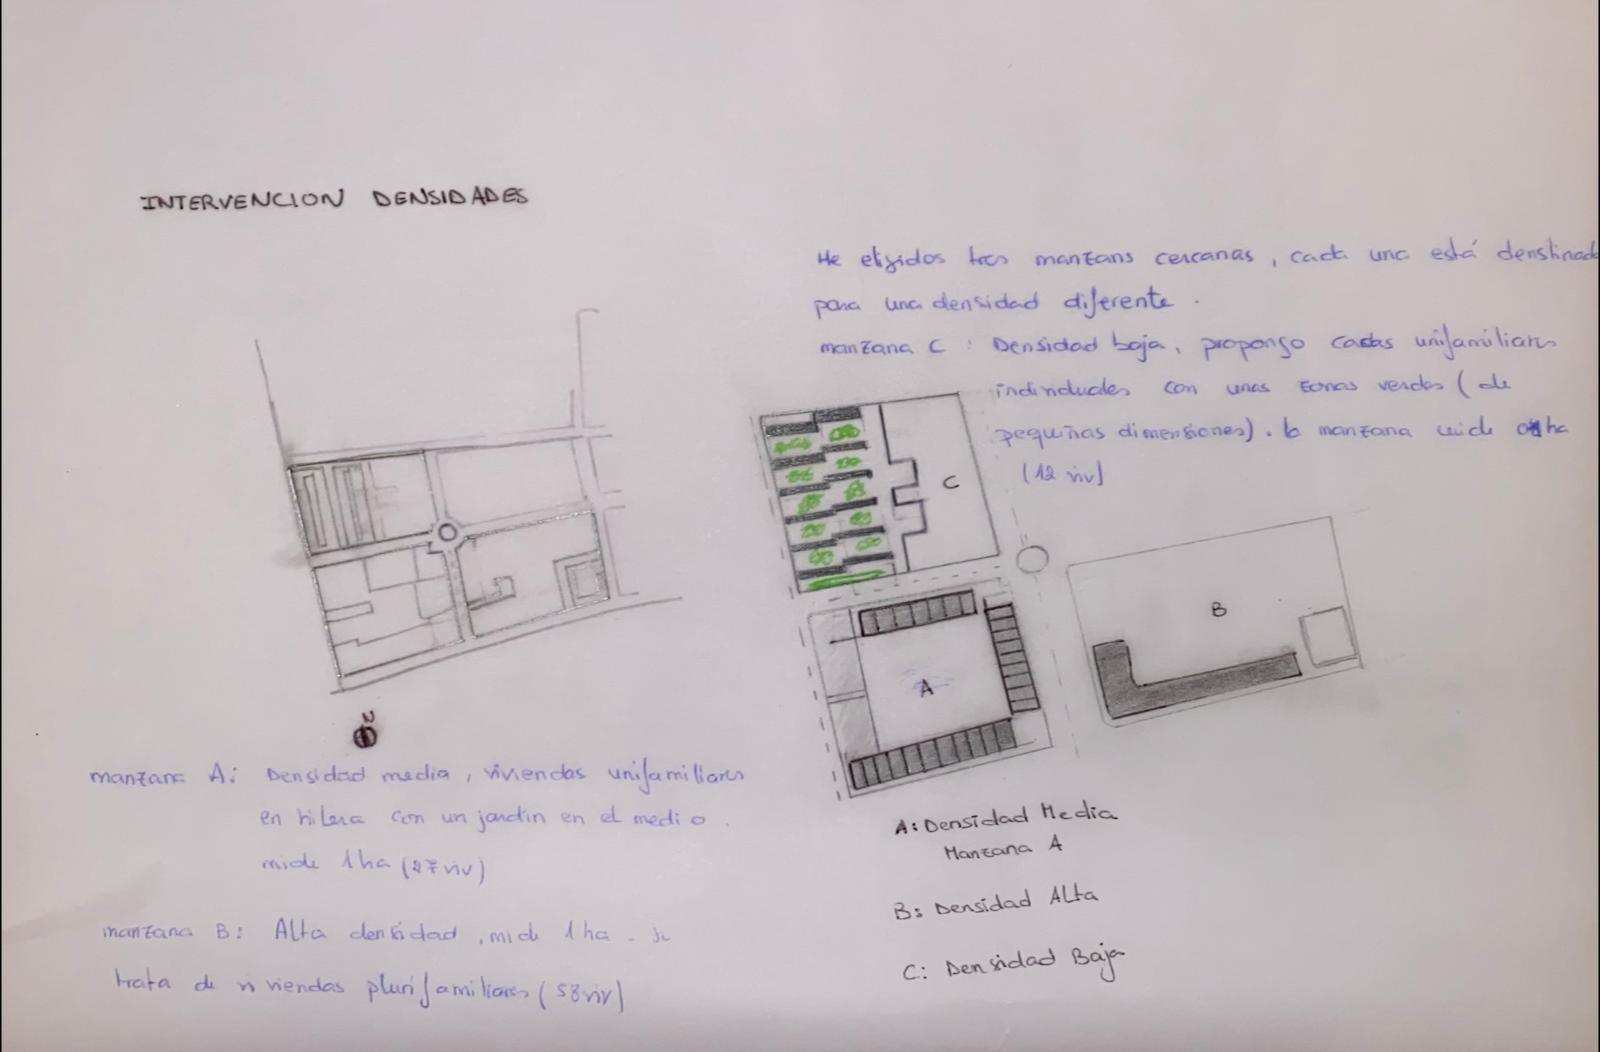 INTERVENCION DENSIDADES
He elijidos tres manzans cercanas, cada una está denstinad
para una densidad diferente.
manzana C: Densidad baja, propongo casas unifamiliares
individuales con unas zonas verdes (de
pequeñas dimensiones). la manzana mide ha
(12 viv)
C
B
A
N
manzana A: Densidad media, viviendas unifamiliares
en hilera con un jardin en el medio.
mide 1 ha (27 viv)
manzana B: Alta densidad, mide 1 ha. se
trata de viviendas plurifamiliares (58 viv)
A: Densidad Media
Manzana A
B: Densidad Alta
C: Densidad Baja